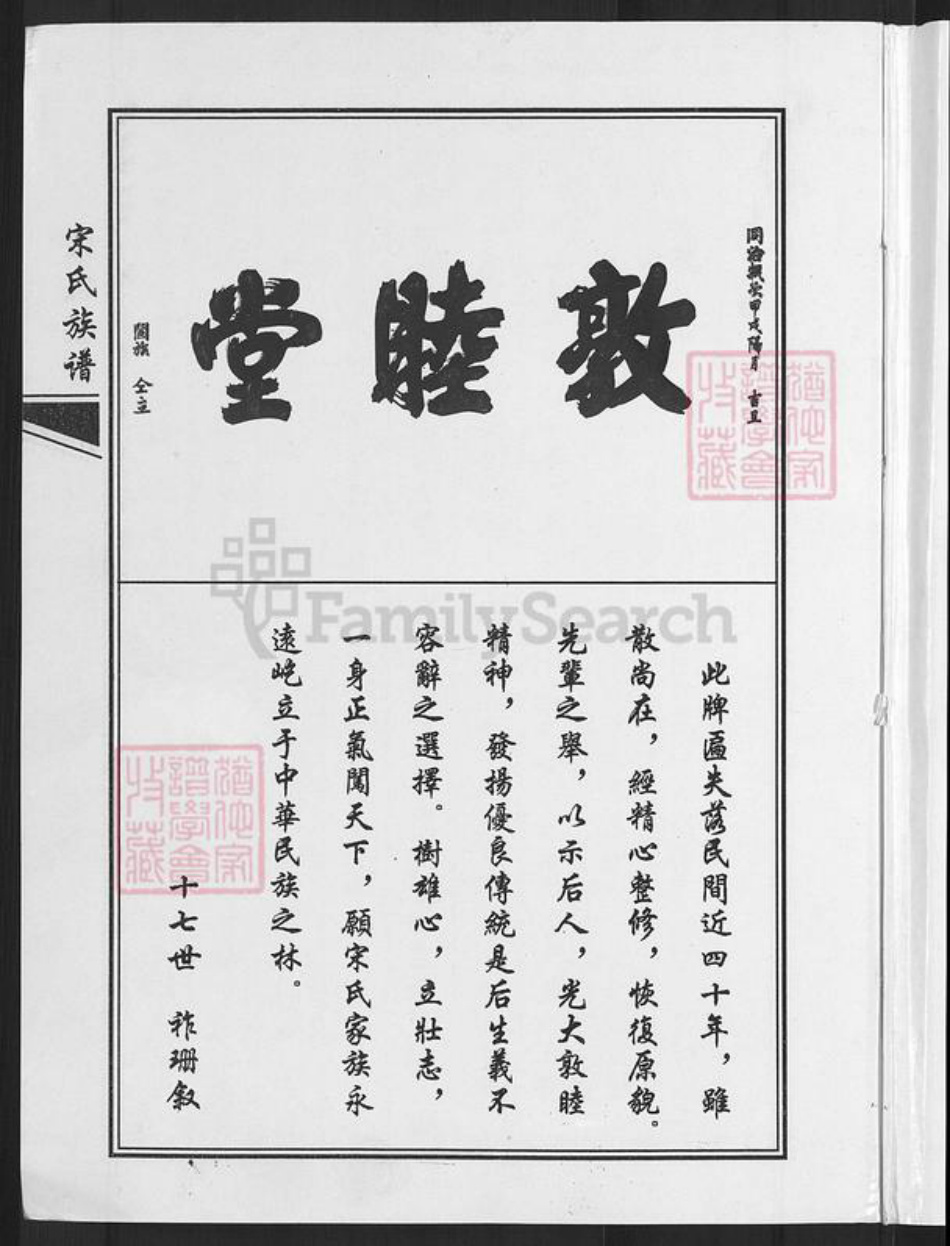 同治歲次甲戌陽月 吉旦
敦睦堂
闔族 仝立
此牌匾失落民間近四十年，雖
散尚在，經精心整修，恢復原貌。
先輩之舉，以示后人，光大敦睦
精神，發揚優良傳統是后生義不
容辭之選擇。樹雄心，立壯志，
一身正氣闖天下，願宋氏家族永
遠屹立于中華民族之林。
十七世 祚珊叙
宋氏族谱
猶他家
譜學會
收藏
猶他家
譜學會
收藏
FamilySearch